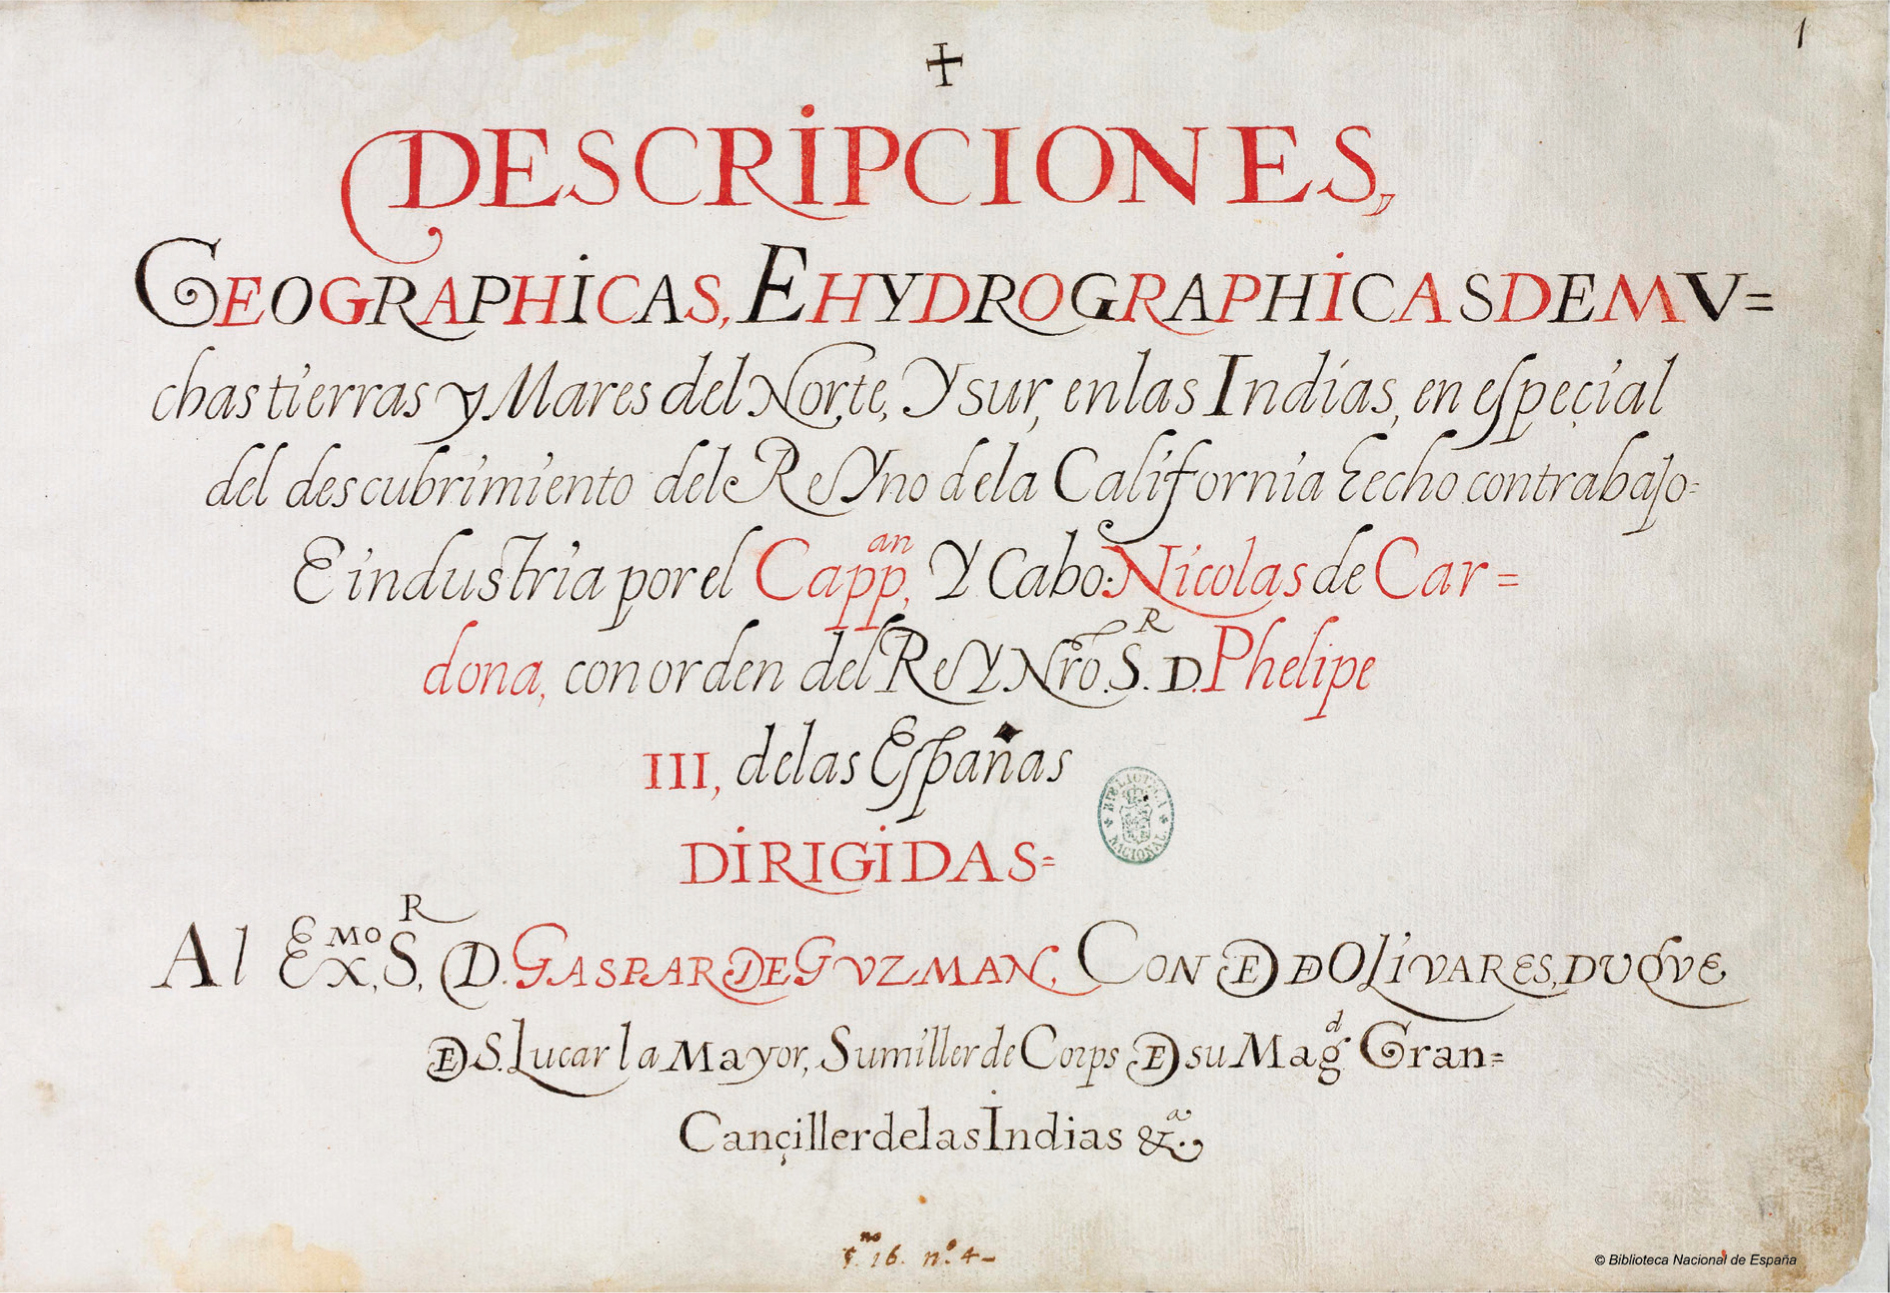 1
DESCRIPCIONES,
GEOGRAPHICAS, E HYDROGRAPHICAS DE MV=
chas tierras y Mares del Norte, Y sur, en las Indias, en especial
del descubrimiento del ReYno de la California hecho con trabajo=
E industria por el Capp.an Y Cabo: Nicolas de Car=
dona, con orden del ReY Nro. S.R D. Phelipe
III, de las Españas
BIBLIOTECA NACIONAL
DIRIGIDAS=
Al EX.MO S.R D. GASPAR DE GVZMAN, CONDE DE OLIVARES, DUQVE
DE S. Lucar la Mayor, Sumiller de Corps DE su Mag.d Gran=
Cançiller de las Indias &.a
16. n.o 4
© Biblioteca Nacional de España